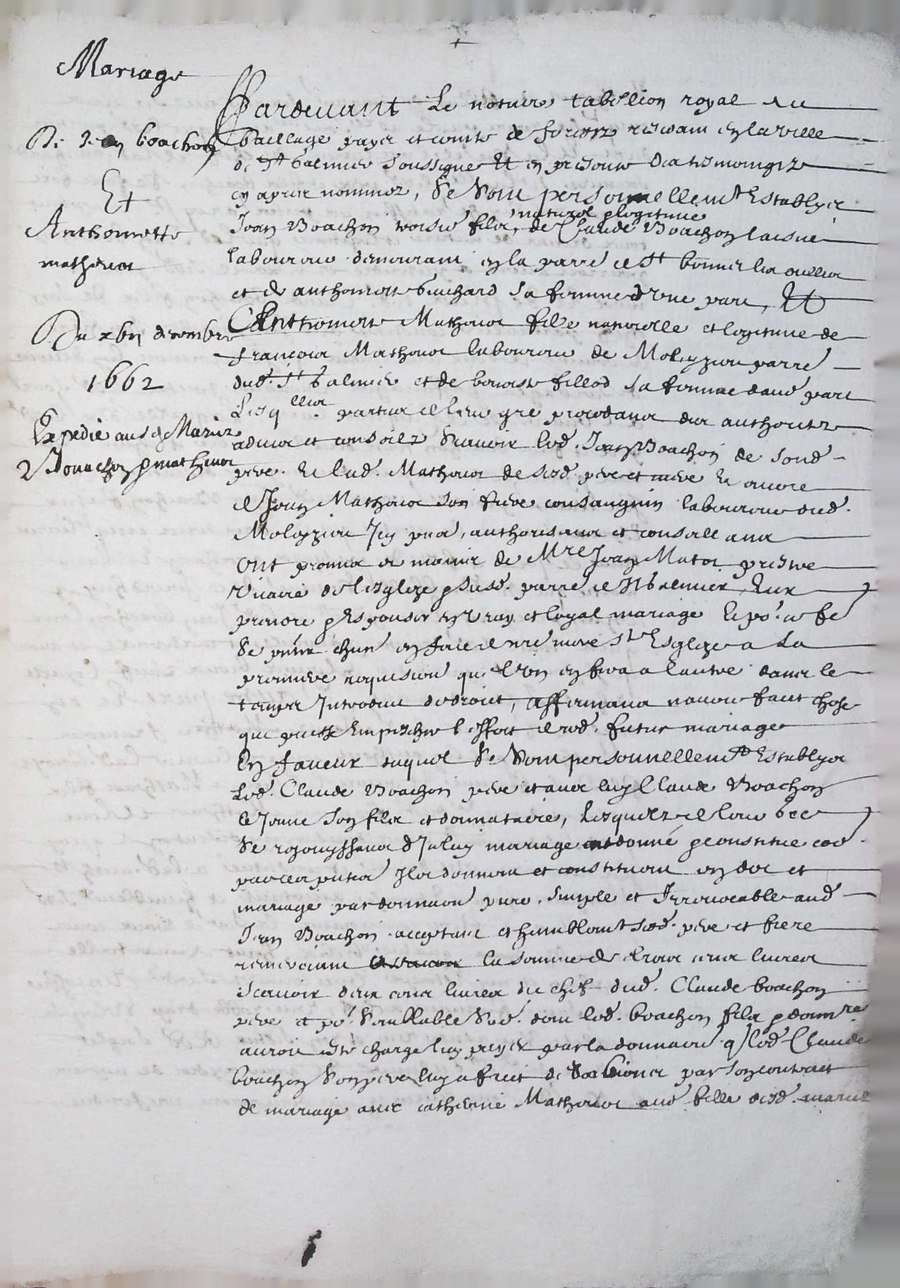 Mariage
De Jean boachon
Et
Anthoinette
matheuot
Du xbiii decembre
1662
Expedié aus d. Mariez
Bouachon & matheuot
Pardeuant Le notaire tabellion royal au
bailliage pays et comté de forestz residant en la ville
de St galmier soubsigne Et en presence des tesmoingtz
cy apres nommez, Se Sont personnellemt Establys
Jean Boachon filz naturel & legitime de Claude Boachon laisné
laboureur demeurant en la parre de St bonnet les oulles
et de anthoinette guichard sa femme d'vne part, Et
Anthoinette Matheuot fille naturelle et legitime de
francois Matheuot laboureur de parre
dud. St galmier et de benoiste fillod sa femme daud. part
Lesquelles parties de leur gre procedans des authoritez
aduis et conseilz Scauoir led. Jean Boachon de sond.
pere. Et lad. Matheuot de sesd. pere et mere Et encore
de Jean Matheuot son frere consanguin laboureur dud.
Jcy pnts, authorisans et conseillans
Ont promis en de Mre Jean prestre
Vicaire de lesglize p susd. parre de St galmier, Eux
prendre & Espouser en vray et loyal mariage Et po. ce fe.
Se pnter chun en face de nre mere Ste Esglize a La
premiere requisition que l'vn en fera a lautre dans le
temps Introduit de droict, affirmans nauoir faict chose
que puisse Empescher l'effect dud. futur mariage
En faueur duquel Se Sont personnellemt Establys
Led. Claude Boachon pere et auec luy Claude Boachon
le Jeune son filz et donnataire, Lesquelz de leur gre
Se rejouyssans d'Iceluy mariage ont donné & constitué
par ces pntes Jlz donnent et constituent en dot et
mariage par donnaon pure, simple et Irreuocable aud.
Jean Boachon acceptant et humblemt sesd. pere et frere
remerciant la somme de trois cens liures
scauoir deux cens liures du chef dud. Claude boachon
pere et po. Semblable Sode. dont led. boachon filz & donnre
auroit este chargé luy payer par la donnaon q led. Claude
boachon Son pere luy a fait de Ses biens par son contract
de mariage auec catherine Matheuot aud. fille desd. mariez